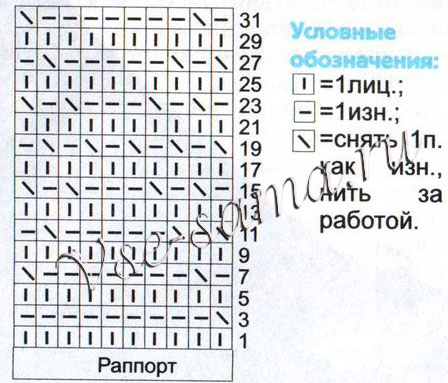 31
29
27
25
23
21
19
17
15
13
11
9
7
5
3
1
Раппорт
Условные
обозначения:
I =1лиц.;
– =1изн.;
\ =снять 1п.
как изн.,
нить за
работой.
Vse-sama.ru